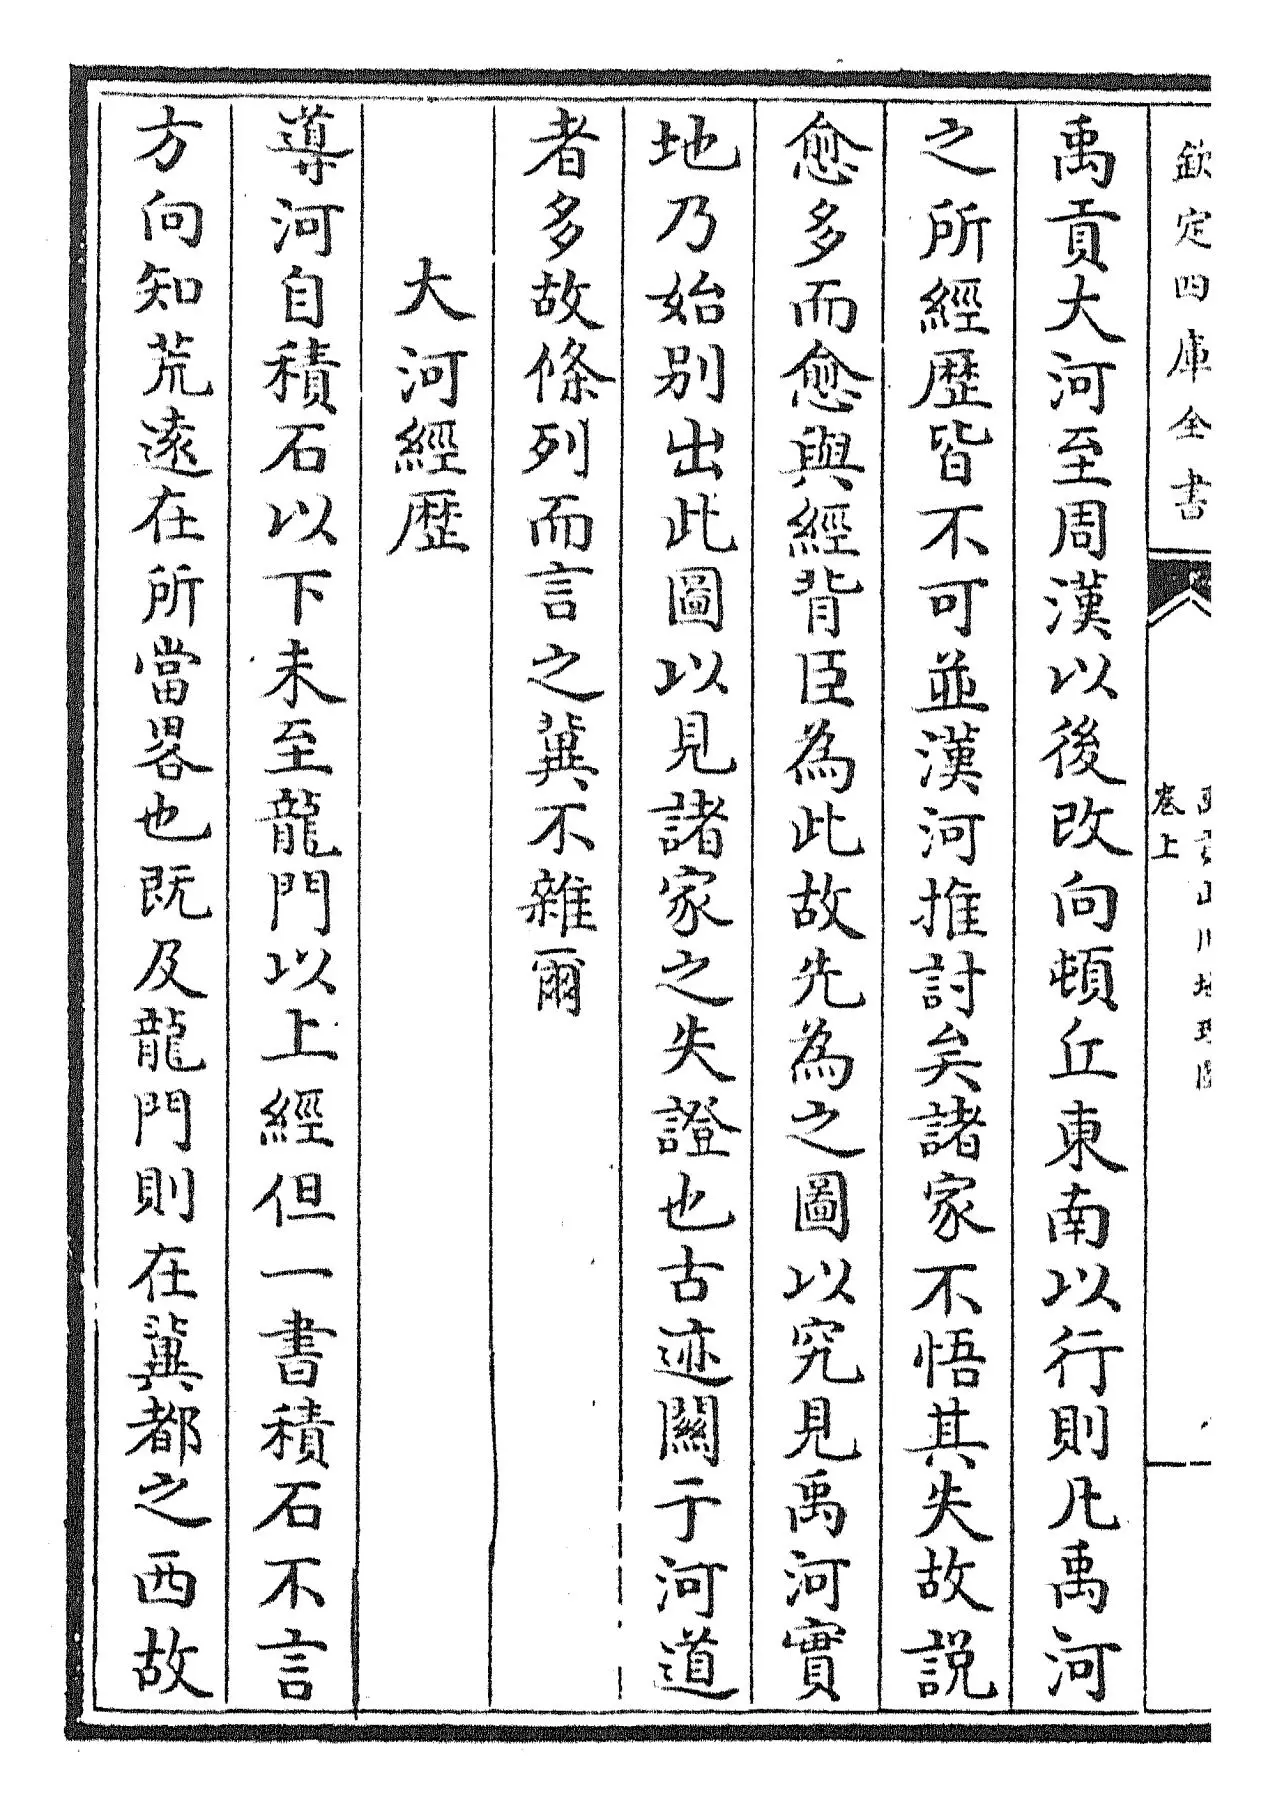 欽定四庫全書
卷上
禹貢大河至周漢以後改向頓丘東南以行則凡禹河
之所經歴皆不可並漢河推討矣諸家不悟其失故説
愈多而愈與經背臣為此故先為之圖以究見禹河實
地乃始别出此圖以見諸家之失證也古迹闗于河道
者多故條列而言之冀不雜爾
大河經歴
導河自積石以下未至龍門以上經但一書積石不言
方向知荒逺在所當畧也既及龍門則在冀都之西故